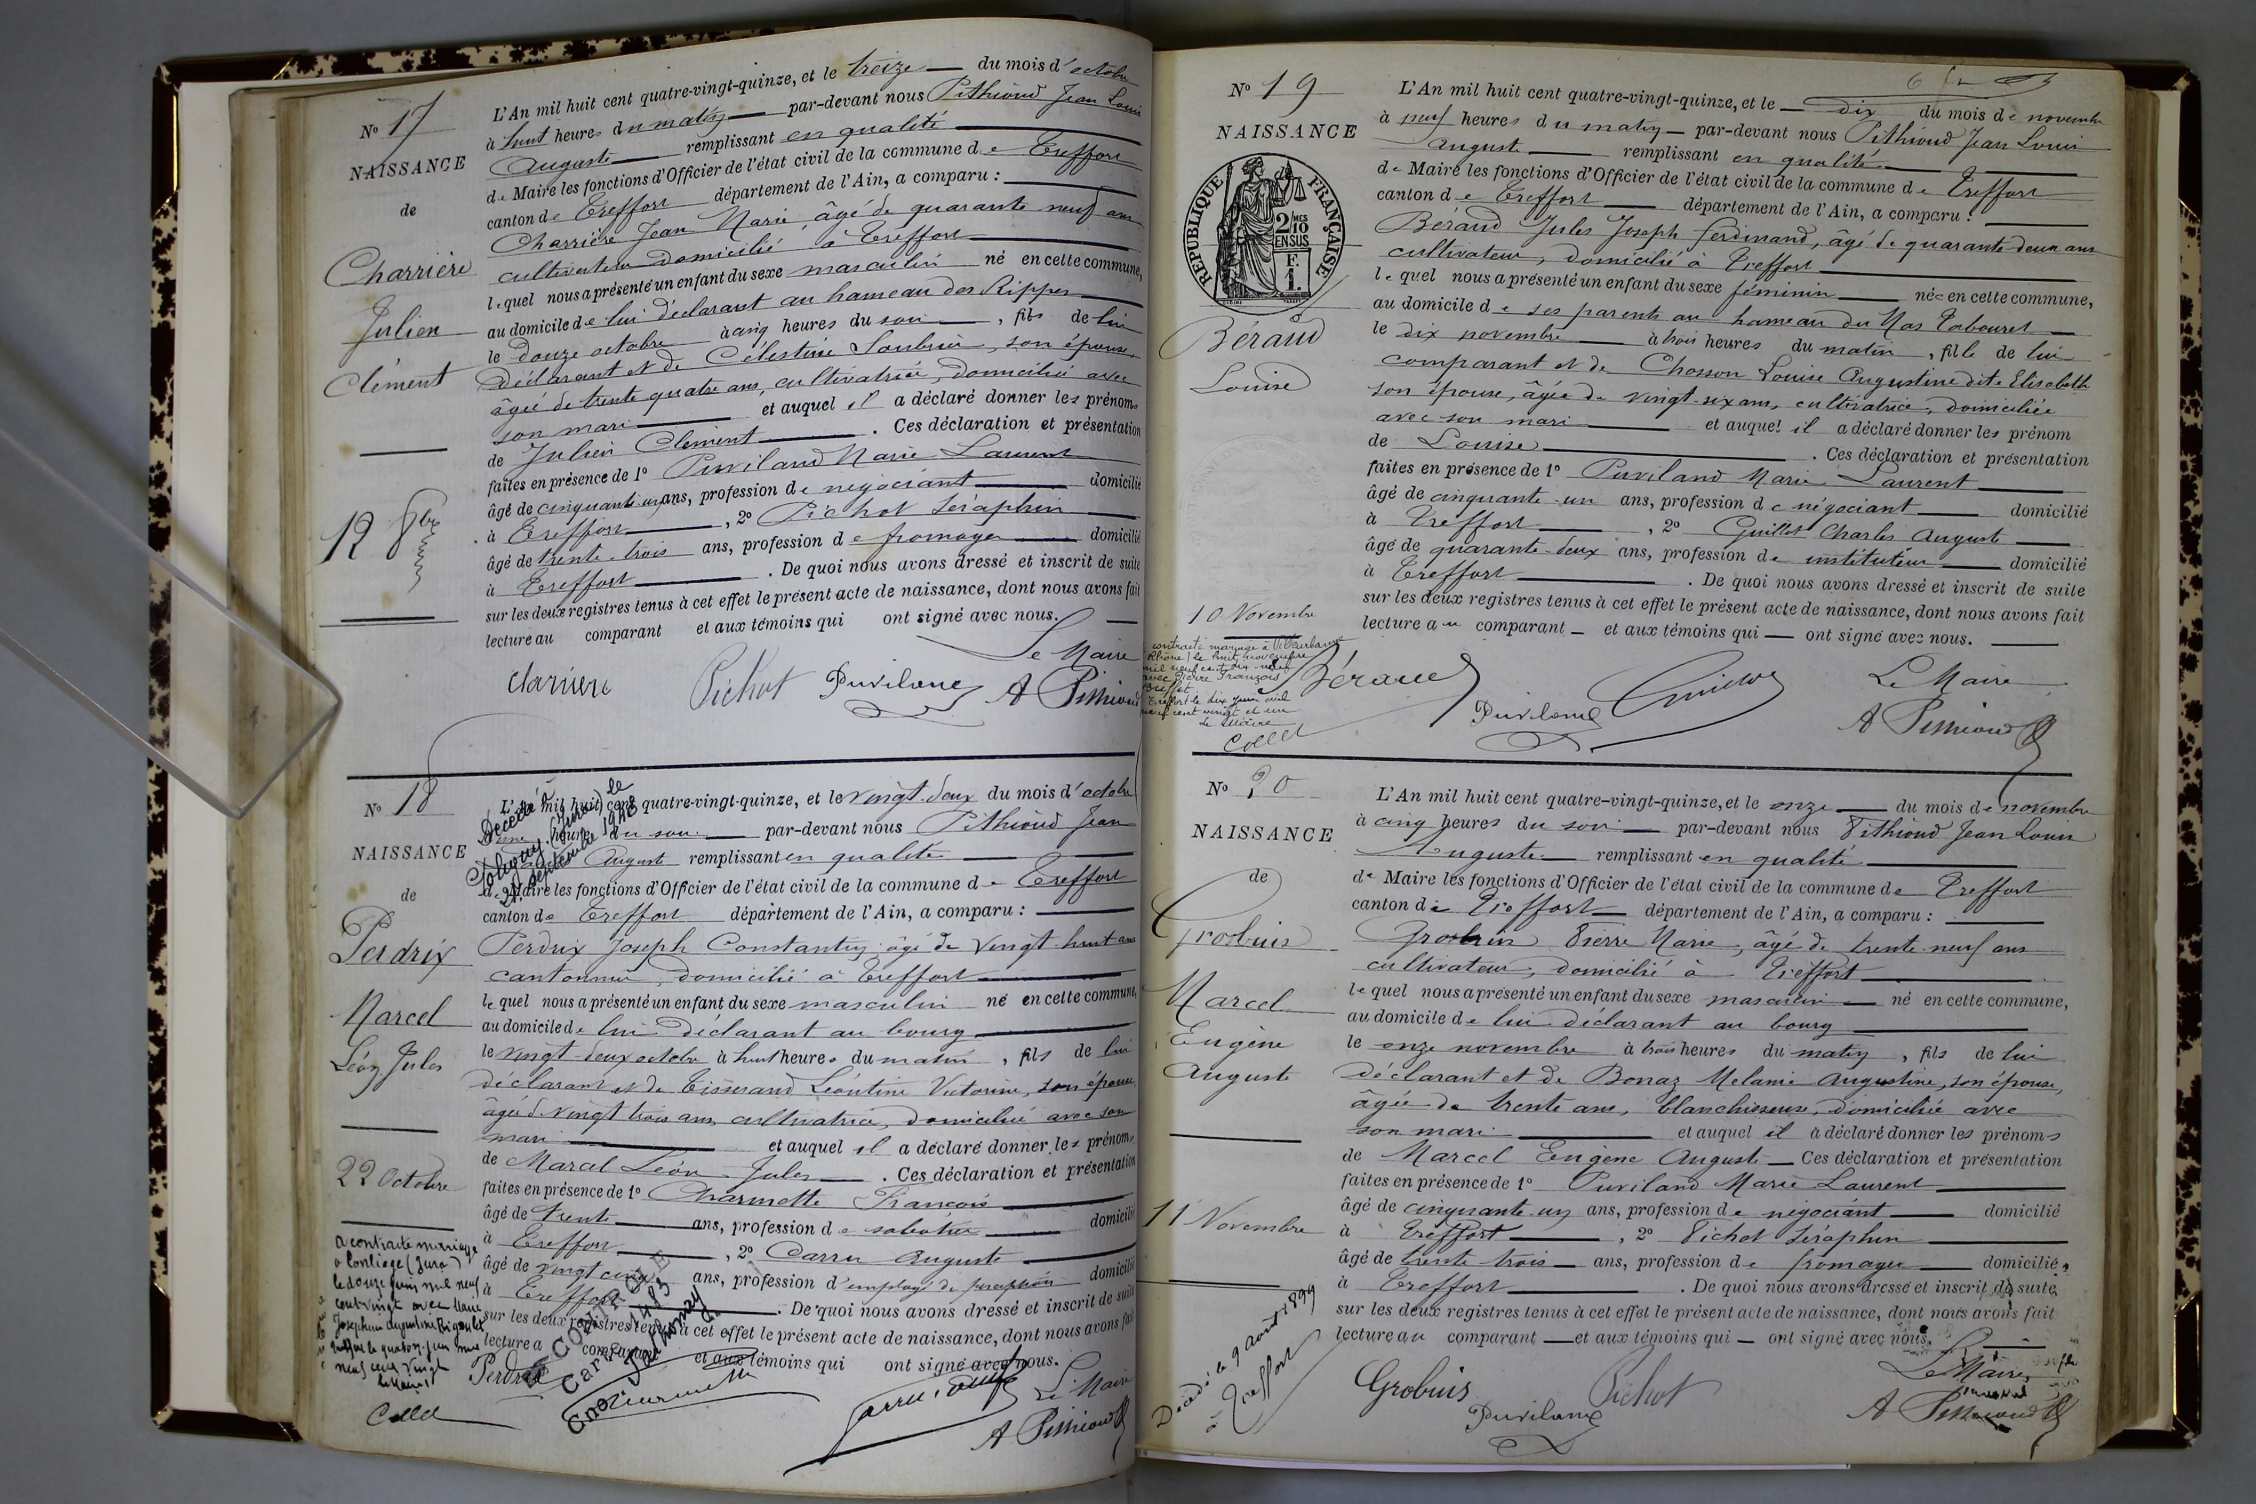 N° 17
NAISSANCE
de
Charrière
Julien
Clément
12 8bre
L'An mil huit cent quatre-vingt-quinze, et le treize du mois d'octobre
à huit heures du matin par-devant nous Pithioud Jean Louis
Auguste remplissant en qualité
de Maire les fonctions d'Officier de l'état civil de la commune de Treffort
canton de Treffort département de l'Ain, a comparu :
Charrière Jean Marie âgé de quarante neuf ans
cultivateur domicilié à Treffort
lequel nous a présenté un enfant du sexe masculin né en cette commune,
au domicile de lui déclarant au hameau des Rippes
le douze octobre à cinq heures du soir, fils de lui
déclarant et de Célestine Soubrier, son épouse
âgée de trente quatre ans, cultivatrice, domiciliée avec
son mari et auquel il a déclaré donner les prénoms
de Julien Clément. Ces déclaration et présentation
faites en présence de 1° Puviland Marie Laurent
âgé de cinquante-un ans, profession de négociant domicilié
à Treffort, 2° Pichot Séraphin
âgé de trente-trois ans, profession de fromager domicilié
à Treffort. De quoi nous avons dressé et inscrit de suite
sur les deux registres tenus à cet effet le présent acte de naissance, dont nous avons fait
lecture au comparant et aux témoins qui ont signé avec nous.
Le Maire
Charriere Pichot Puviland A Pithioud
N° 18
NAISSANCE
de
Perdrix
Marcel
Léon Jules
22 Octobre
a contracté mariage
à Conliège (Jura)
le douze juin mil neuf
cent vingt avec Marie
Joséphine Augustine
Treffort le quatorze juin mil
neuf cent vingt
Le Maire
Collet
Décédé à
Poligny (Jura) le
21 septembre 1948
L'An mil huit cent quatre-vingt-quinze, et le vingt-deux du mois d'octobre
à une heure du soir par-devant nous Pithioud Jean
Louis Auguste remplissant en qualité
de Maire les fonctions d'Officier de l'état civil de la commune de Treffort
canton de Treffort département de l'Ain, a comparu :
Perdrix Joseph Constantin âgé de vingt-huit ans
cantonnier, domicilié à Treffort
lequel nous a présenté un enfant du sexe masculin né en cette commune,
au domicile de lui déclarant au bourg
le vingt-deux octobre à huit heures du matin, fils de lui
déclarant et de Tisserand Léontine Victorine, son épouse,
âgée de vingt trois ans, cultivatrice, domiciliée avec son
mari et auquel il a déclaré donner les prénoms
de Marcel Léon Jules. Ces déclaration et présentation
faites en présence de 1° Charmette François
âgé de trente ans, profession de sabotier domicilié
à Treffort, 2° Carru Auguste
âgé de vingt cinq ans, profession d'employé de perception domicilié
à Treffort. De quoi nous avons dressé et inscrit de suite
sur les deux registres tenus à cet effet le présent acte de naissance, dont nous avons fait
lecture au comparant et aux témoins qui ont signé avec nous.
Perdrix Le Maire
A Pithioud
N° 19
NAISSANCE
RÉPUBLIQUE FRANÇAISE
2/10 EN SUS
F. 1.
Béraud
Louise
10 Novembre
contracté mariage à Villeurbanne
(Rhône) le huit novembre
mil neuf cent dix-neuf
avec Pierre François
Treffort le dix juin mil
neuf cent vingt et un
Le Maire
Collet
L'An mil huit cent quatre-vingt-quinze, et le dix du mois de novembre
à neuf heures du matin par-devant nous Pithioud Jean Louis
Auguste remplissant en qualité
de Maire les fonctions d'Officier de l'état civil de la commune de Treffort
canton de Treffort département de l'Ain, a comparu :
Béraud Jules Joseph Ferdinand, âgé de quarante-deux ans
cultivateur, domicilié à Treffort
lequel nous a présenté un enfant du sexe féminin née en cette commune,
au domicile de ses parents au hameau du Mas Tabouret
le dix novembre à trois heures du matin, fille de lui
comparant et de Chosson Louise Augustine dite Elisabeth
son épouse, âgée de vingt-six ans, cultivatrice, domiciliée
avec son mari et auquel il a déclaré donner les prénom
de Louise. Ces déclaration et présentation
faites en présence de 1° Puviland Marie Laurent
âgé de cinquante-un ans, profession de négociant domicilié
à Treffort, 2° Guillot Charles Auguste
âgé de quarante-deux ans, profession de instituteur domicilié
à Treffort. De quoi nous avons dressé et inscrit de suite
sur les deux registres tenus à cet effet le présent acte de naissance, dont nous avons fait
lecture au comparant et aux témoins qui ont signé avec nous.
Le Maire
Béraud Puviland Guillot A Pithioud
N° 20
NAISSANCE
de
Grosbuis
Marcel
Eugène
Auguste
11 Novembre
Décédé le 9 août 1899
à Treffort
L'An mil huit cent quatre-vingt-quinze, et le onze du mois de novembre
à cinq heures du soir par-devant nous Pithioud Jean Louis
Auguste remplissant en qualité
de Maire les fonctions d'Officier de l'état civil de la commune de Treffort
canton de Treffort département de l'Ain, a comparu :
Grosbuis Pierre Marie, âgé de trente-neuf ans
cultivateur, domicilié à Treffort
lequel nous a présenté un enfant du sexe masculin né en cette commune,
au domicile de lui déclarant au bourg
le onze novembre à trois heures du matin, fils de lui
déclarant et de Bonaz Melanie Augustine, son épouse,
âgée de trente ans, blanchisseuse, domiciliée avec
son mari et auquel il a déclaré donner les prénoms
de Marcel Eugène Auguste Ces déclaration et présentation
faites en présence de 1° Puviland Marie Laurent
âgé de cinquante-un ans, profession de négociant domicilié
à Treffort, 2° Pichot Séraphin
âgé de trente-trois ans, profession de fromager domicilié
à Treffort. De quoi nous avons dressé et inscrit de suite
sur les deux registres tenus à cet effet le présent acte de naissance, dont nous avons fait
lecture au comparant et aux témoins qui ont signé avec nous.
Le Maire
Grobuis Puviland Pichot A Pithioud